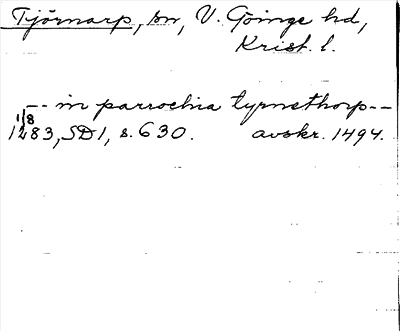 Tjörnarp, sn, V. Göinge hd,
Krist. l.
-- in parrochia tyrnethorp --
1/8
1283, SD 1, s. 630. avskr. 1494.